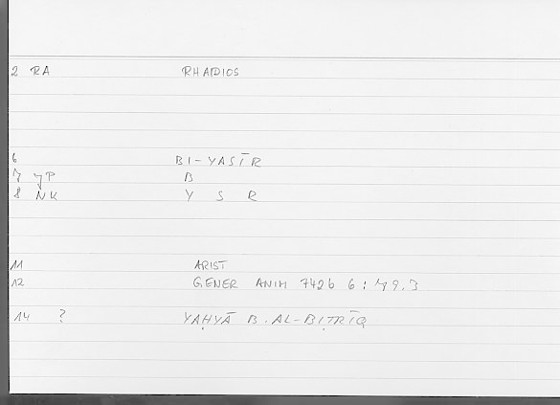 2 RA RHADIOS
6 BI-YASĪR
7 yP B
8 NK Y S R
11 ARIST
12 GENER ANIM 742b 6 : 79.3
14 ? YAḤYĀ B. AL-BIṬRĪQ